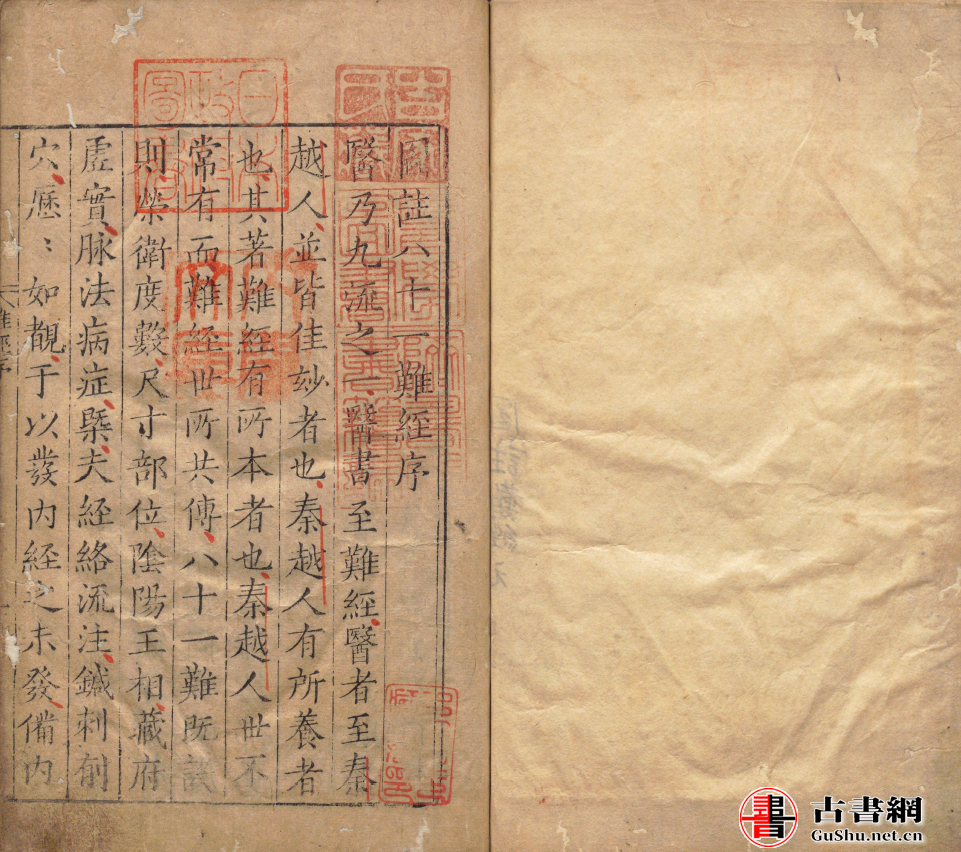 圖註八十一難經序
醫乃九流之一醫書至難經醫者至秦
越人並皆佳妙者也秦越人有所養者
也其著難經有所本者也秦越人世不
常有而難經世所共傳八十一難既設
則榮衛度數尺寸部位陰陽王相藏府
虛實脉法病症㮣夫經絡流注鍼刺俞
穴歷〻如覩于以發內経之未發俻內
古書網
GuShu.net.cn